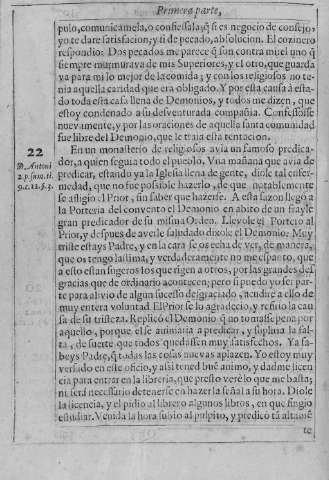 Primera parte,
pulo, comunicamela, o confiessala, q̃ si es negocio de consejo,
yo te dare satisfacion, y si de pecado, absolucion. El cozinero
respondio: Dos pecados me parece q̃ son contra mi: el uno q̃
siempre murmurava de mis Superiores, y el otro, que guarda
va para mi lo mejor de la comida; y con los religiosos no te-
nia aquella caridad que era obligado. Y por esta causa à esta-
do toda esta casa llena de Demonios, y todos me dizen, que
estoy condenado a su desventurada compañia. Confessosse
nuevamente, y por las oraciones de aquella santa comunidad
fue libre del Demonio, que le traia essa tentacion.
22
D. Antoni
2. p. sum. ti.
9. c. 12. §. 3.
En un monasterio de religiosos avia un famoso predica-
dor, a quien seguia todo el pueblo. Una mañana que avia de
predicar, estando ya la Iglesia llena de gente, diole tal enfer-
medad, que no fue possible hazerlo, de que notablemente
se afligio el Prior, sin saber que hazerse. A esta sazon llegò a
la Porteria del convento el Demonio en abito de un frayle
gran predicador de su misma Orden. Llevole el Portero al
Prior, y despues de averle saludado dixole el Demonio: Muy
triste estays Padre, y en la cara se os echa de ver, de manera,
que os tengo lastima, y verdaderamente no me espanto, que
a esto estan sugetos los que rigen a otros, por las grandes des
gracias que de ordinario acontecen; pero si puedo yo ser par-
te para alivio de algun sucesso desgraciado, acudire a ello de
muy entera voluntad. El Prior se lo agradecio, y refirio la cau
sa de su tristeza. Replicò el Demonio q̃ no tomasse pena por
aquello, porque el se animaria a predicar, y supliria la fal-
ta, de suerte que todos quedassen muy satisfechos. Ya sa-
beys Padre, q̃ todas las cosas nuevas aplazen. Yo estoy muy
versado en este oficio, y assi tened buẽ animo, y dadme licen
cia para entrar en la libreria, que presto verè lo que me basta;
ni serà necessario detenerse en hazer la señal a su hora. Diole
la licencia, y el pidio al librero algunos libros, en que fingio
estudiar. Venida la hora subio al pulpito, y predicò tã altamẽ
te